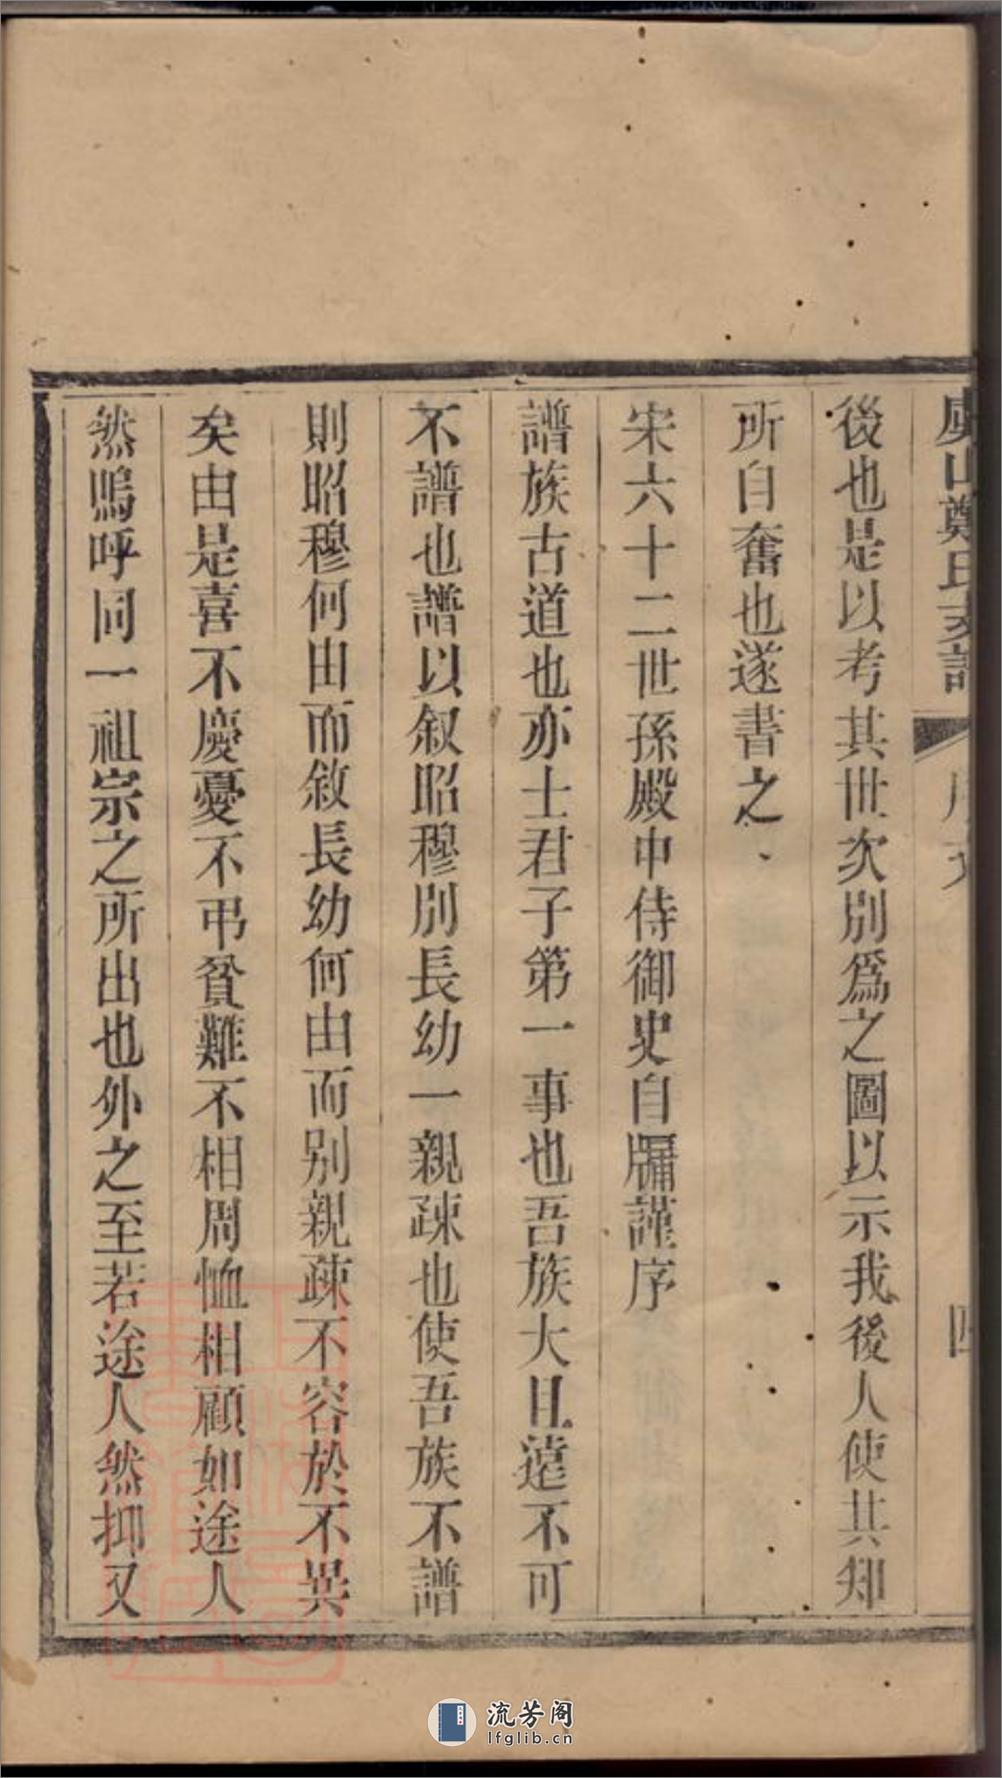 虞山鄭氏支譜
序文
四
後也是以考其世次別爲之圖以示我後人使其知
所自奮也遂書之
宋六十二世孫殿中侍御史自牖謹序
譜族古道也亦士君子第一事也吾族大且遠不可
不譜也譜以叙昭穆別長幼一親疎也使吾族不譜
則昭穆何由而敘長幼何由而別親疎不容於不異
矣由是喜不慶憂不弔貧難不相周恤相顧如途人
然嗚呼同一祖宗之所出也外之至若途人然抑又
流芳阁
lfglib.cn